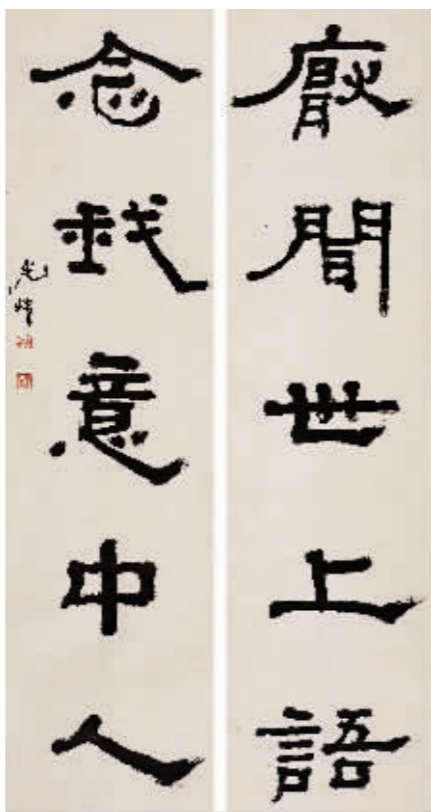 厭聞世上語
念我意中人
光煒